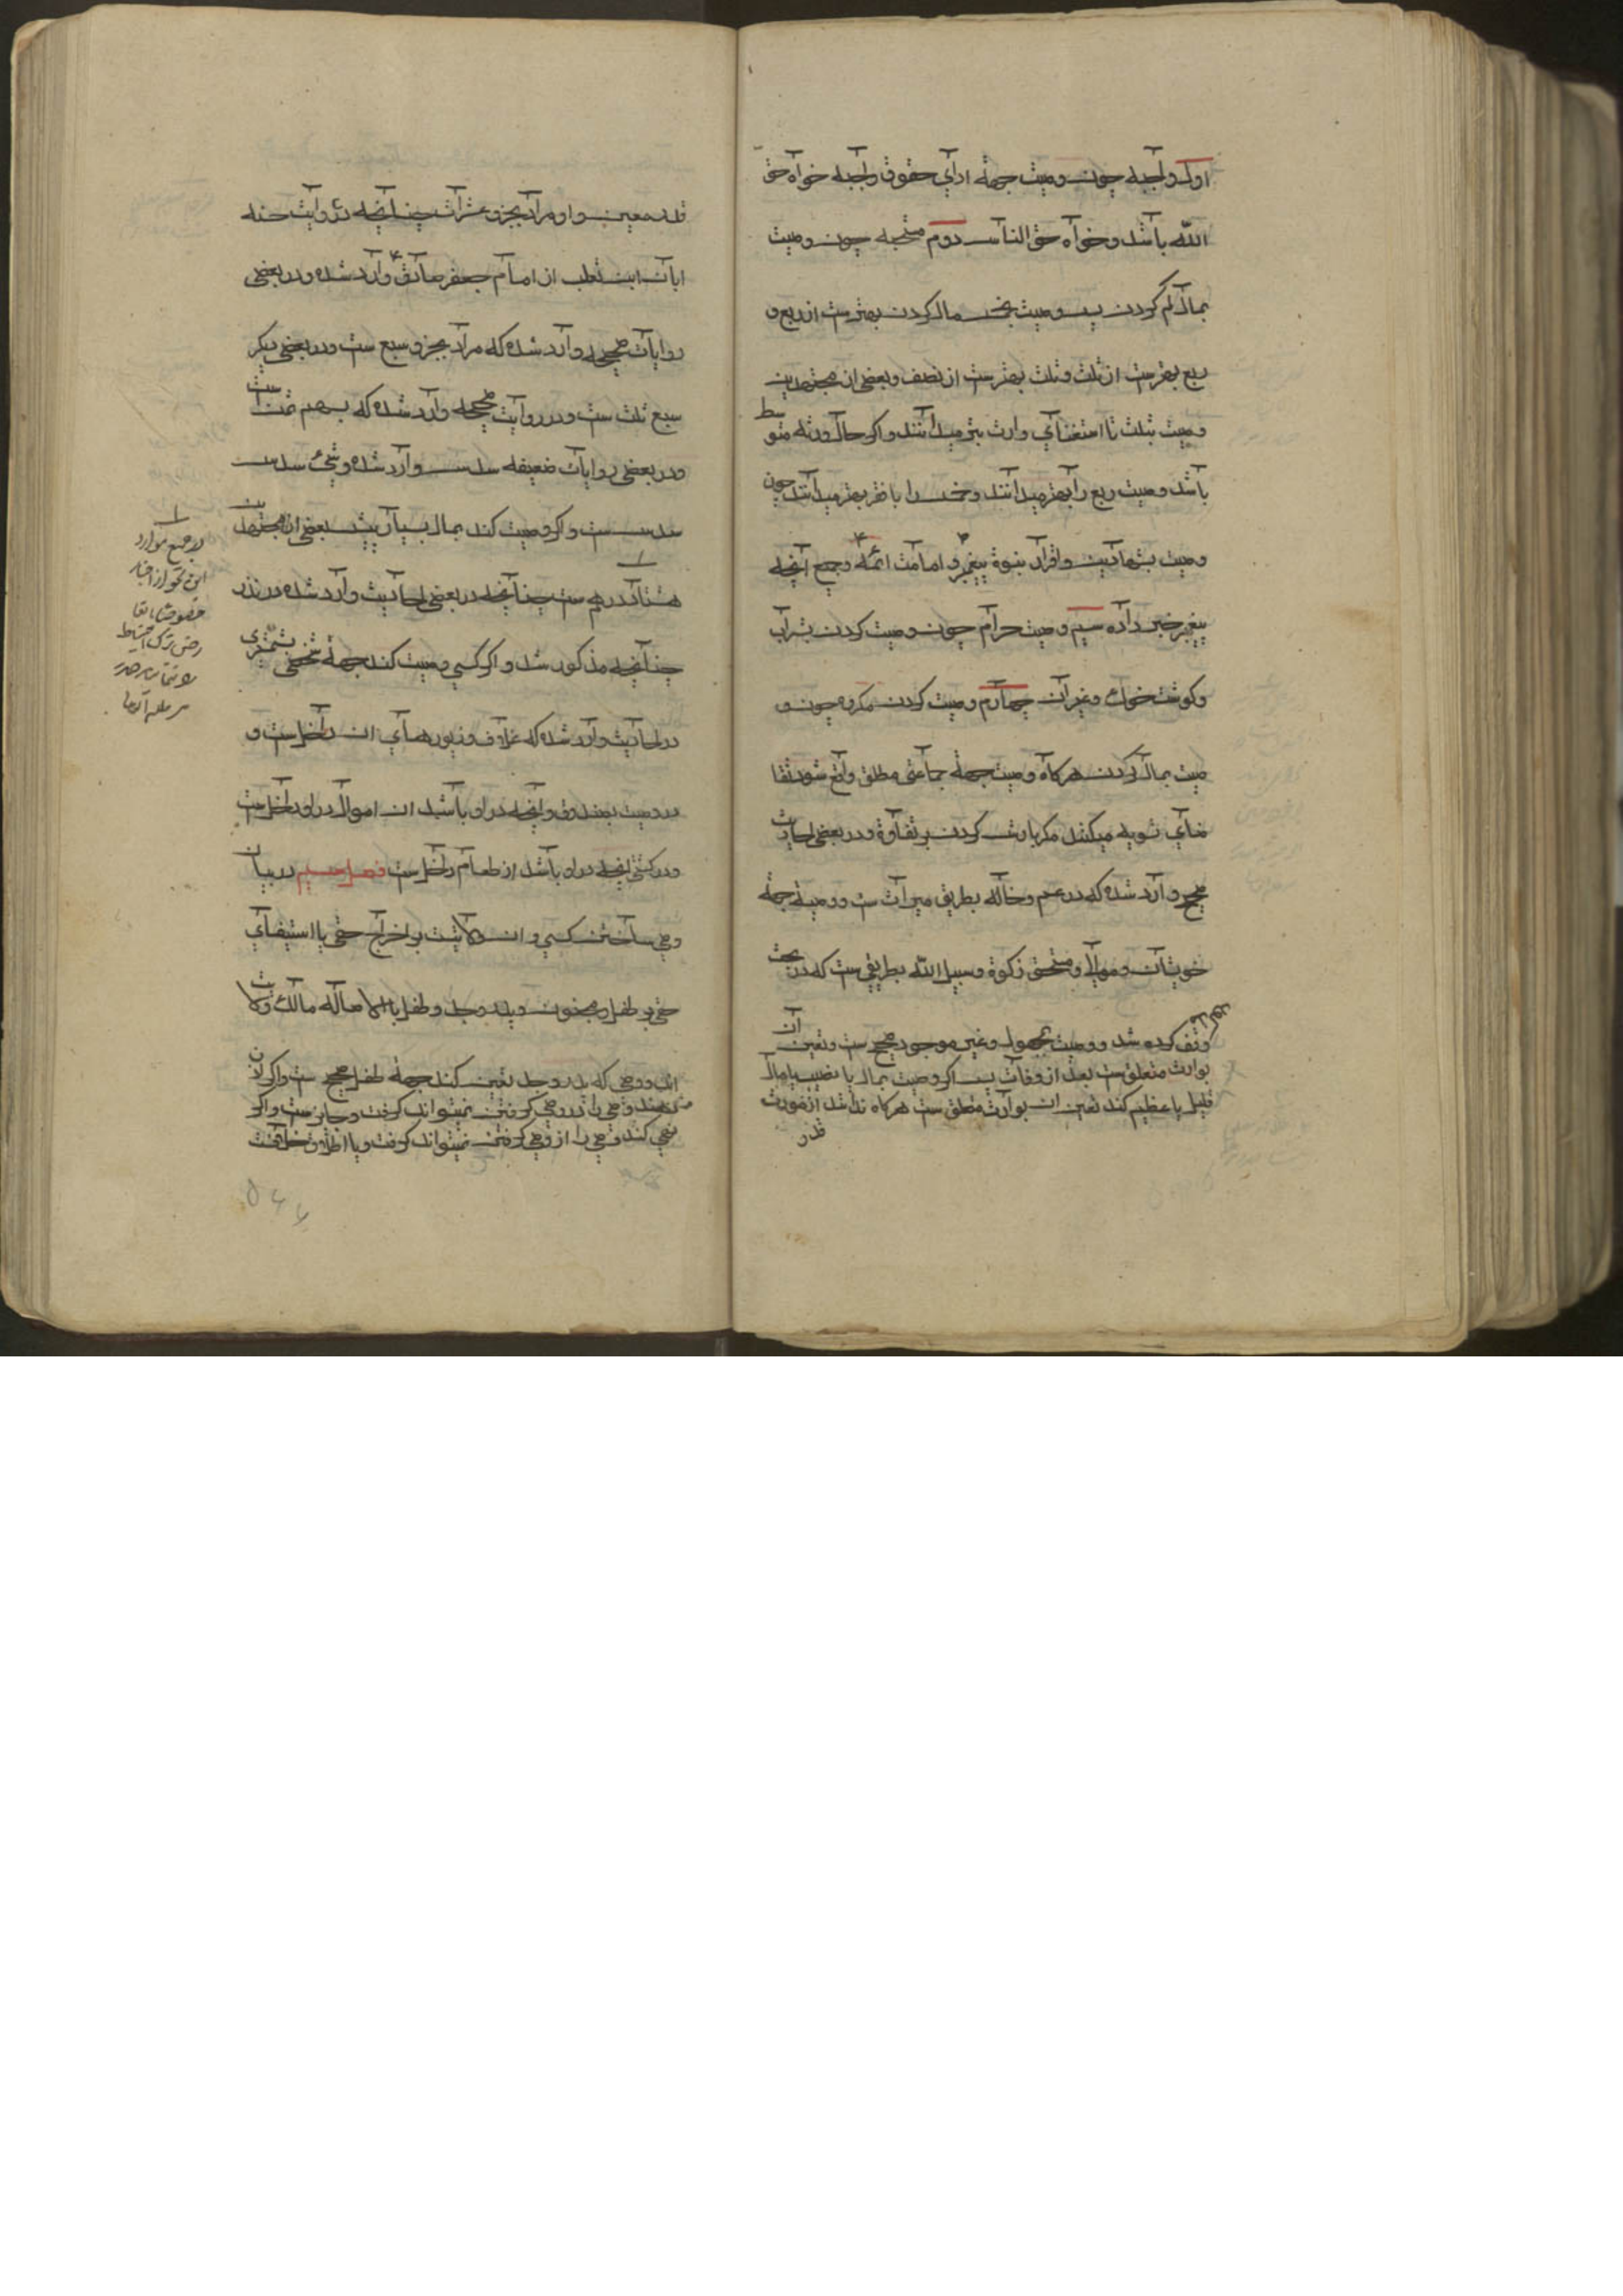 اول واجبه چون وصیت جهة ادای حقوق واجبه خواه حق
الله باشد وخواه حق الناس دوم مستحبه چون وصیت
بمال کم کردن پس وصیت بخمس مال کردن بهترست از ربع و
ربع بهترست از ثلث وثلث بهترست از نصف وبعضی از مجتهدین
وصیت بثلث با استغنای وارث بهتر میدانند واکر حال ورثه متوسط
باشد وصیت ربع را بهتر میدانند وخمس را با فقر بهتر میدانند چون
وصیت بشهادتین واقرار بنبوة پیغمبر و امامت ائمه وجمیع آنچه
پیغمبر خبر داده سیم وصیت حرام چون وصیت کردن بشراب
وکوشت خوک وغیر آن چهارم وصیت کردن مکروه چون و
صیت بمال کردن هرکاه وصیت جهة جماعتی مطلق واقع شود تقا
ضای تسویه میکند مکر بارث کردن بر تفاوة ودر بعضی احادیث
صحیح وارد شده که در عم وخاله بطریق میراث ست ووصیة جهة
خویشان وموالی ومستحق زکوة وسبیل الله بطریقی ست که در بحث
وقف مذکور کرده شد ووصیت بمجهول وغیر موجود صحیح ست وتعین آن
بوارث متعلق ست بعد از وفات پس اکر وصیت بمال یا نصیب یا مال
قلیل یا عظیم کند تعین ان بوارث متعلق ست هرکاه نداشد از مورث
قدر
قدر معین واو مراد بجزو عشرات چنانچه در روایت حسنه
ابان ابن تغلب از امام جعفر صادق وارد شده ودر بعضی
روایات صحیحه وارد شده که مراد بجزو سبع ست ودر بعضی دیکر
سبع ثلث ست ودر روایت صحیحه وارد شده که بسهم ثمن ست
ودر بعضی روایات ضعیفه سدس وارد شده وشیء سدس
سدس ست واکر وصیت کند بمال بسیار پیش بعضی از مجتهدین
هشتاد درهم ست چنانچه در بعضی احادیث وارد شده در نذر
چنانچه مذکور شد واکر کسی وصیت کند جهة شخصی بشمشیری
در احادیث وارد شده که غلاف وزیورهای ان داخل ست و
در وصیت بصندوق وانچه در او باشد از اموال در او داخل ست
ودر کشتی انچه در او باشد از طعام داخل ست فصل سیم در بیان
وصی ساختن کسی وان ولایت بر اخراج حقی یا استیفای
حقی بر طفل ومجنون وپدر وجد وطفل بالاصاله مالک ولایت
اند ووصی که پدر وجد تعین کنند جهة طفل صحیح ست واکر اذن
دهند وصی را در وصی کرفتن میتواند کرفت وجایز ست واکر
نهی کند وصی را از وصی کرفتن نمیتواند کرفت وبا اطلاق خلافست
در جمیع موارد
این نحو از اخبار
خصوصا با تقا
رض ترک احتیاط